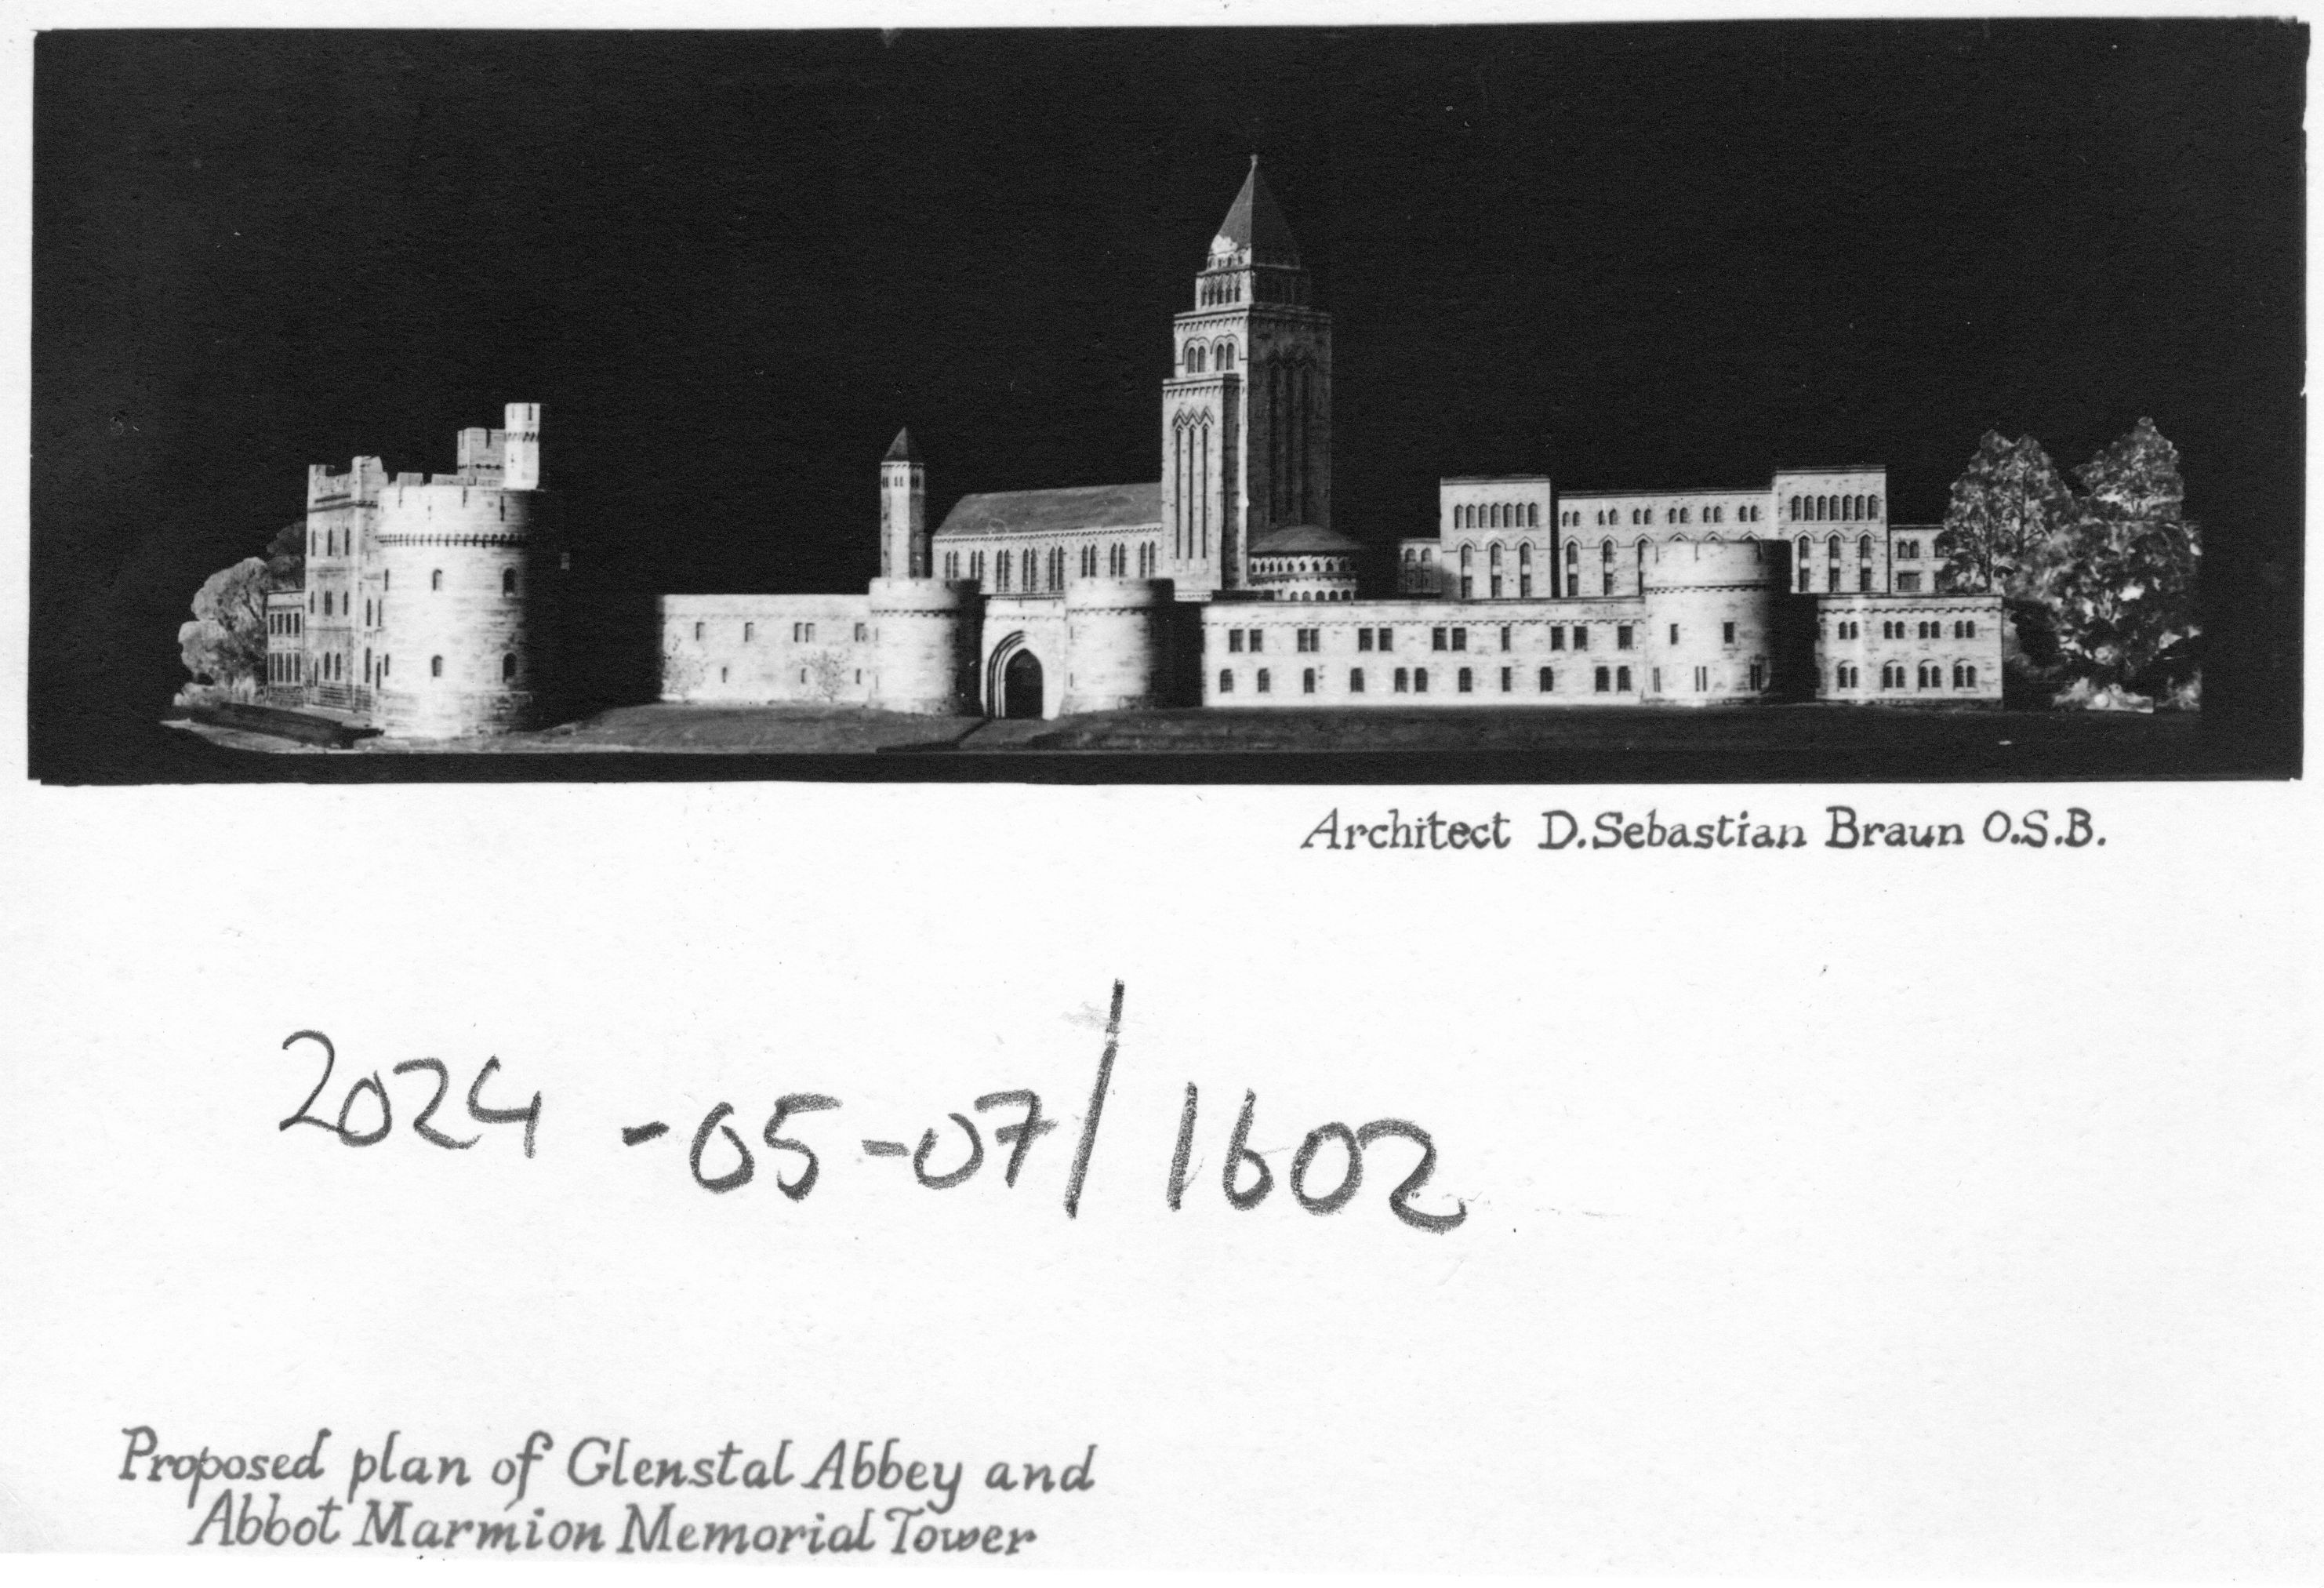 Architect D. Sebastian Braun O.S.B.
2024-05-07/1602
Proposed plan of Glenstal Abbey and
Abbot Marmion Memorial Tower